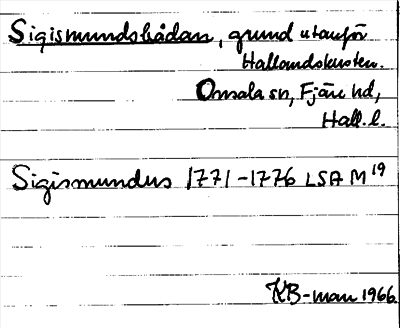 Sigismundsbådan, grund utanför
Hallandskusten.
Onsala sn, Fjäre hd,
Hall. l.
Sigismundus 1771-1776 LSA M 19
KB-man 1966.